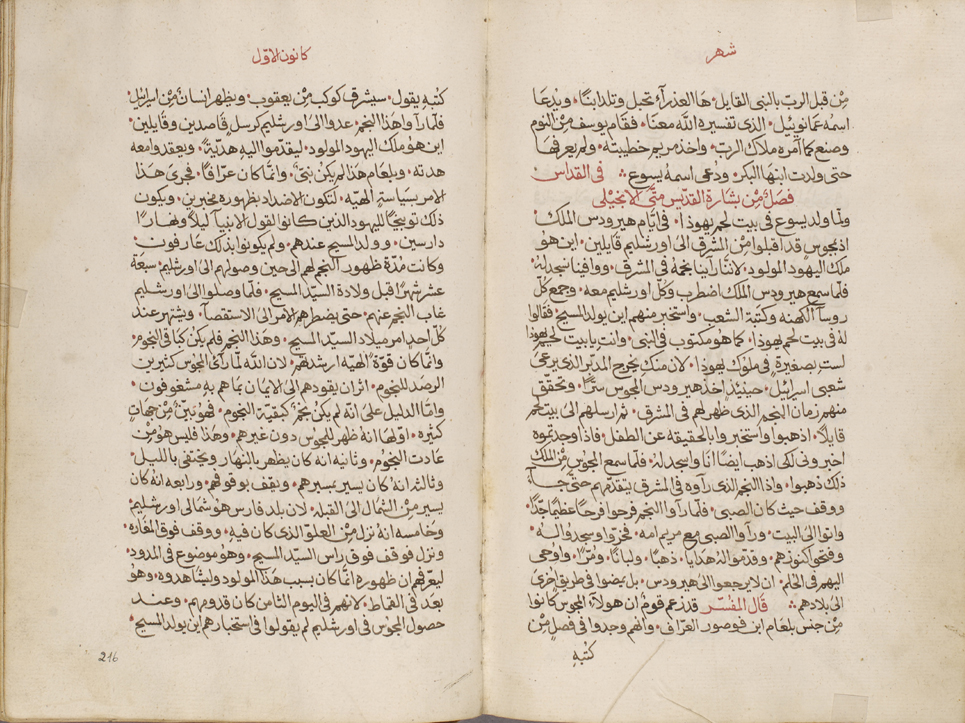 شهر
من قبل الرب بالنبي القايل. ها العذرآء تحبل وتلد ابنًا. ويدعا
اسمه عمانوييل. الذي تفسيره الله معنا. فقام يوسف من النوم
وصنع كما آمره ملاك الرب. واخذ مريم خطيبته. ولم يعرفها
حتى ولدت ابنها البكر. ودعى اسمه يسوع ۞ في القداس
فصل من بشارة القديس متى الانجيلي
ولما ولد يسوع في بيت لحم يهوذا. في ايام هيرودس الملك.
اذ مجوس قد اقبلوا من المشرق الى اورشليم قايلين. اين هو
ملك اليهود المولود. لاننا راينا نجمه في المشرق. ووافينا نسجد له.
فلما سمع هيرودس الملك اضطرب وكل اورشليم معه. وجمع كل
روسآ الكهنه وكتبة الشعب. واستخبر منهم اين يولد المسيح. فقالوا
له في بيت لحم يهوذا. كما هو مكتوب في النبي. وانت يا بيت لحم يهوذا
لست بصغيرة في ملوك يهوذا. لان منك يخرج المدبر الذي يرعى
شعبي اسرايل. حينيذ اخذ هيرودس المجوس سرًا. وتحقق
منهم زمان النجم الذي ظهر لهم في المشرق. ثم ارسلهم الى بيت لحم
قايلا. اذهبوا واستخبروا بالحقيقه عن الطفل. فاذا وجدتموه
اخبروني لكي اذهب ايضًا انا واسجد له. فلما سمع المجوس من الملك
ذلك ذهبوا. واذا النجم الذي رآوه في المشرق يتقدمهم حتى جآ
ووقف حيث كان الصبي. فلما رآوا النجم فرحوا فرحًا عظيمًا جدًا.
واتوا الى البيت. ورآوا الصبي مع مريم امه. فخروا وسجدوا له.
وفتحوا كنوزهم. وقدموا له هدايا. ذهبًا. ولبانًا. ومرًا. واوحى
اليهم في الحلم. ان لا يرجعوا الى هيرودس. بل يمضوا في طريق اخرى
الى بلادهم ۞ قال المفسر قد زعم قوم ان هولآء المجوس كانوا
من جنس بلعام ابن فوصور العراف. وانهم وجدوا في فصل من
كتبه
كانون الاول
كتبه يقول. سيشرق كوكب من يعقوب. ويظهر انسان من اسرايل.
فلما رآوا هذا النجم. عدوا الى اورشليم كرسل قاصدين وقايلين.
اين هو ملك اليهود المولود. ليقدموا اليه هديةً. ويعقدوا معه
هدنة. وبلعام هذا لم يكن نبيً. وانما كان عرافًا. فجرى هذا
الامر بسياسة الهيّه. لتكون الاضداد بظهوره مخبرين. ويكون
ذلك توبيخًا لليهود الذين كانوا لقول الانبيآ ليلاً ونهارًا
دارسين. وولد المسيح عندهم. ولم يكونوا بذلك عارفون.
وكانت مُدّة ظهور النجم لهم الى حين وصولهم الى اورشليم. سبعة
عشر شهرًا قبل ولادة السيد المسيح. فلما وصلوا الى اورشليم
غاب النجم عنهم. حتى يضطرهم الامر الى الاستقصآء. ويشتهر عند
كل احد امر ميلاد السيد المسيح. وهذا النجم فلم يكن كباقي النجوم.
وانما كان قوة الهيه ارشدتهم. لان الله لما رآى المجوس كثيرين
الرصد للنجوم. اثر ان يقودهم الى الايمان بما هم به مشغوفون.
واما الدليل على انه لم يكن نجم كبقية النجوم. فهو بيّن من جهات
كثيره. اولها انه ظهر للمجوس دون غيرهم. وهذا فليس هو من
عادت النجوم. وثانيه انه كان يظهر بالنهار ويختفي بالليل.
وثالثه انه كان يسير بمسيرهم. ويقف بوقوفهم. ورابعه انه كان
يسير من الشمال الى القبله. لان بلد فارس هو شمالي اورشليم.
وخامسه انه نزل من العلو الذي كان فيه. ووقف فوق المغاره.
ونزل فوقف فوق راس السيد المسيح. وهو موضوع في المدود.
ليعرفهم ان ظهوره انما كان بسبب هذا المولود وليشاهدوه. وهو
بعد في القماط. لانهم في اليوم الثامن كان قدومهم. وعند
حصول المجوس في اورشليم لم يقولوا في استخبارهم اين يولد المسيح.
216